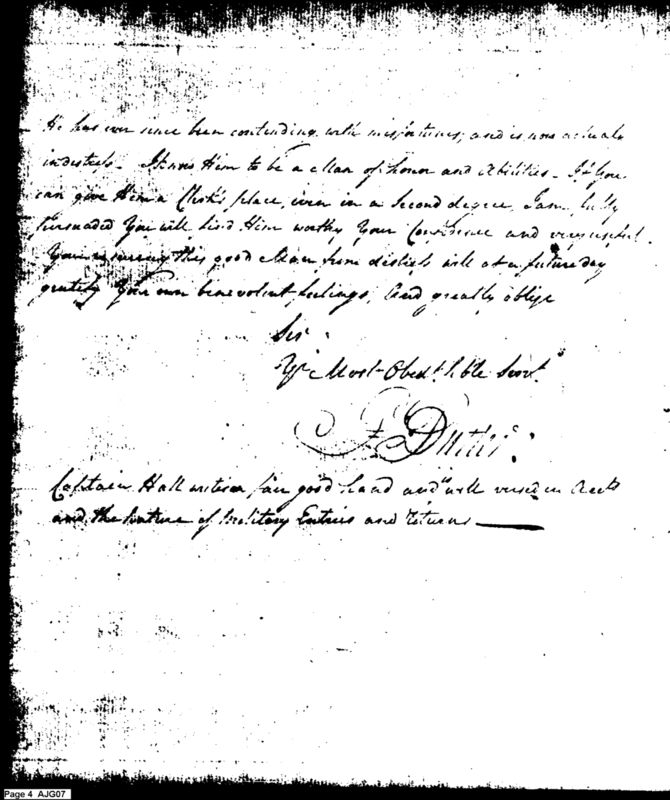 He has ever since been contending with misfortunes, and is now actualy
in distress - I know Him to be a Man of honor and Abilities - If You
can give Him a Clerk's place, even in a Second degree, I am fully
persuaded You will find Him worthy Your Confidence and very useful.
Your rescuing this good Man from distress will at a future day
gratify Your own benevolent feelings, And greatly oblige
Sir
Yr Most Obedt hble Servt
Captain Hall writes a fair good hand and is well versed in Accts
and the nature of Military Entries and returns
Page 4 AJG07